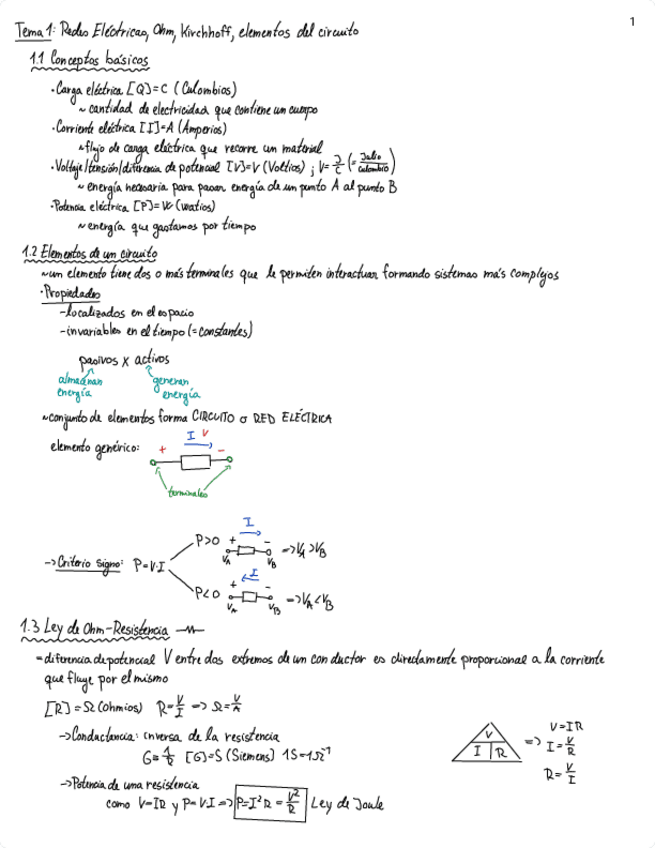 1
Tema 1: Redes Eléctricas, Ohm, Kirchhoff, elementos del circuito
1.1 Conceptos básicos
·Carga eléctrica [Q]=C (Culombios)
~ cantidad de electricidad que contiene un cuerpo
·Corriente eléctrica [I]=A (Amperios)
~flujo de carga eléctrica que recorre un material
·Voltaje/tensión/diferencia de potencial [V]=V (Voltios) ; V= J/C (= Julio/culombio)
~ energía necesaria para pasar energía de un punto A al punto B
·Potencia eléctrica [P]=W (watios)
~ energía que gastamos por tiempo
1.2 Elementos de un circuito
~un elemento tiene dos o más terminales que le permiten interactuar formando sistemas más complejos
·Propiedades
-localizados en el espacio
-invariables en el tiempo (=constantes)
pasivos x activos
almacenan energía
generan energía
~conjunto de elementos forma CIRCUITO o RED ELÉCTRICA
I V
elemento genérico: + -
terminales
I
P>0 + - => VA>VB
VA VB
->Criterio signo: P=V·I
I
P<0 + - => VA<VB
VA VB
1.3 Ley de Ohm-Resistencia
-diferencia de potencial V entre dos extremos de un conductor es directamente proporcional a la corriente
que fluye por el mismo
[R]=Ω (Ohmios) R=V/I => Ω=V/A
->Conductancia: inversa de la resistencia
G=1/R [G]=S (Siemens) 1S=1Ω⁻¹
V
I R
=> V=IR
I=V/R
R=V/I
->Potencia de una resistencia
como V=IR y P=V·I => P=I²R=V²/R Ley de Joule